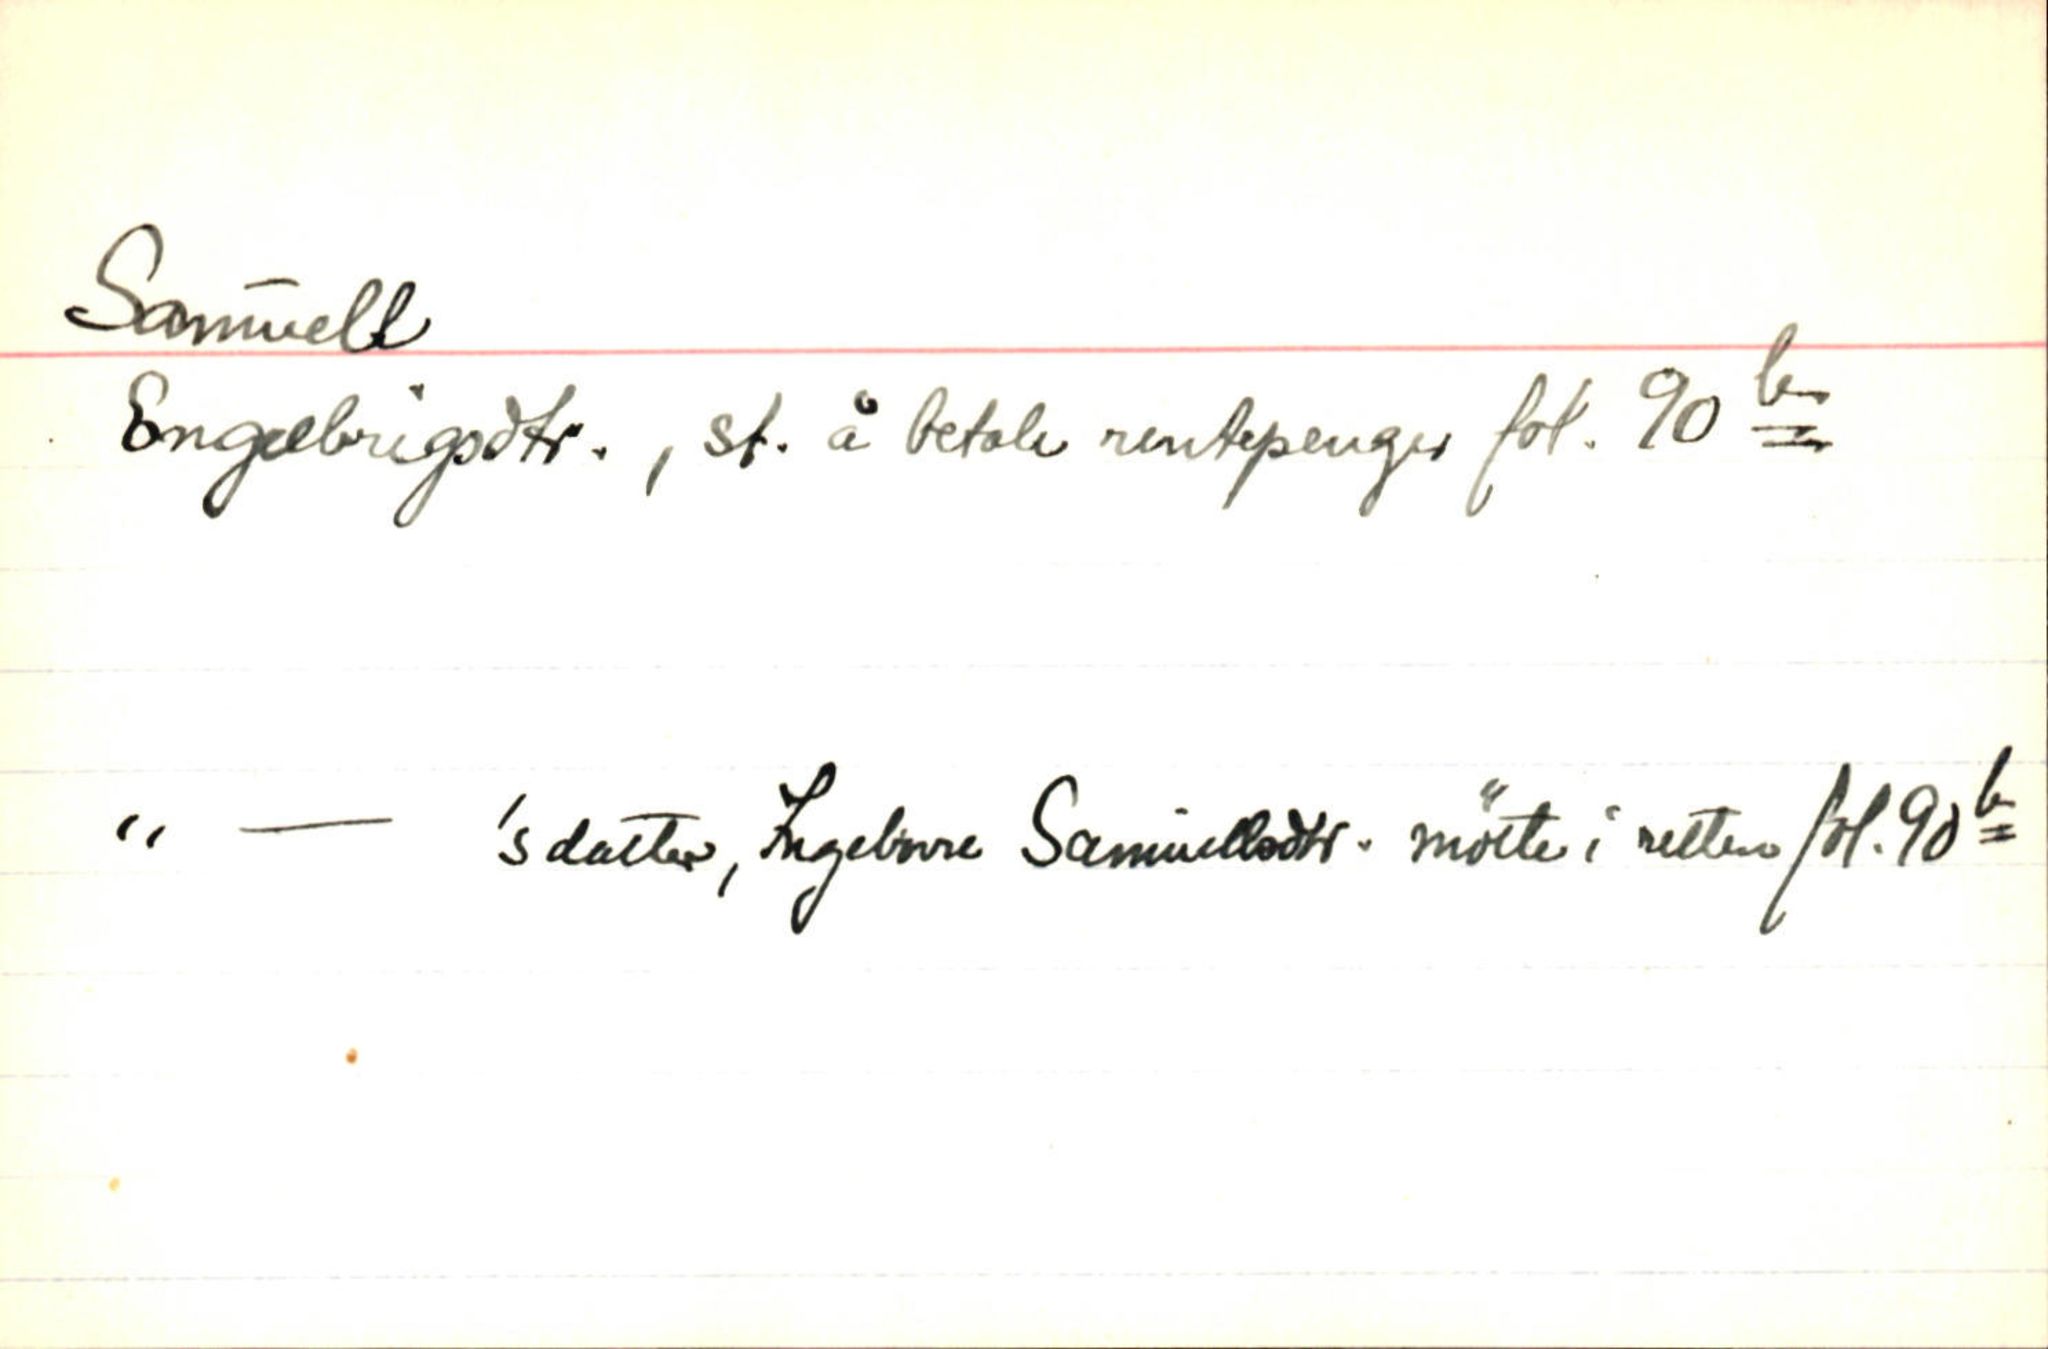 Samuell
Engelbrigsdtr., st. å betale rentepenger fol. 90 b
" — 'sdatter, Ingeborre Samuellsdtr. mötte i retten fol. 90 b